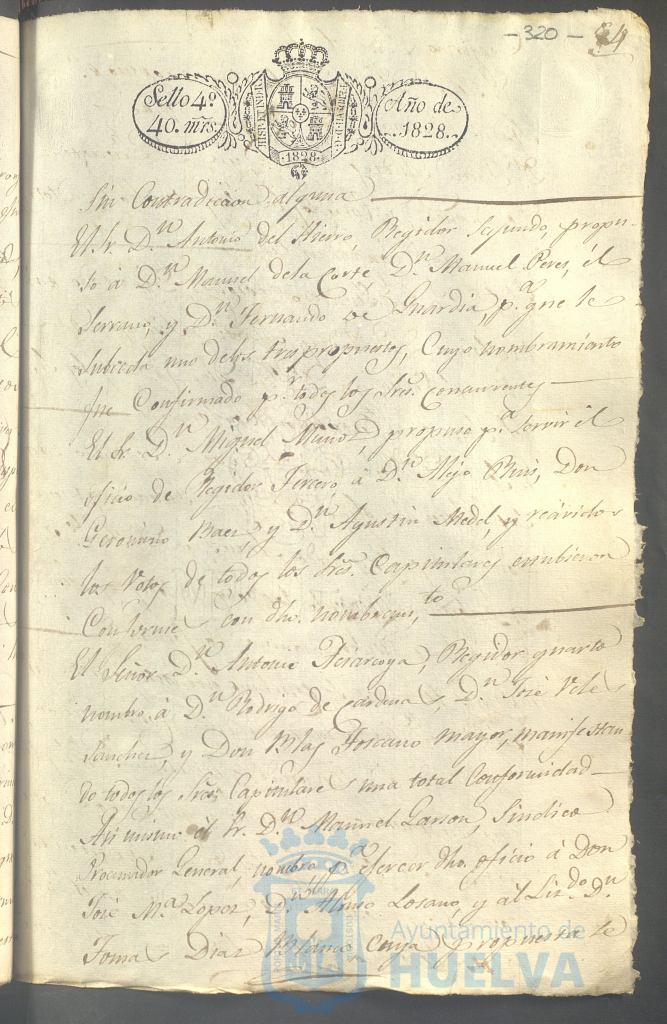 - 320 - 84
Sello 4º
40. mrs
HISP. ET IND. R
1828
Año de
1828.
Sin Contradicion alguna
El Sr. Dn. Antonio del Hierro, Regidor Segundo, propu-
so á Dn. Manuel de la Corte, Dn. Manuel Peres, el
Serrano, y Dn. Fernando de Guardia, pa. que le
subceda uno de los tres propuestos, Cuyo nombramiento
fue Confirmado pr. todos los Sres. concurrentes
El Sr. Dn. Miguel Muñoz, propuso pa. servir el
oficio de Regidor Tercero á Dn. Alejo Ruis, Don
Geronimo Baez y Dn. Agustin Medel, y recividos
los Votos de todos los Sres. Capitulares estubieron
Conforme con dho. nombram.to
El Señor Dn. Antonio Regidor quarto
nombro á Dn. Rodrigo de Cardenas, Dn. José Vele
Sanchez, y Don Blas Toscano mayor, manifestan
do todos los Sres. Capitulares una total Conformidad
Asi mismo el Sr. Dn. Manuel Garson, Sindico
Procurador General, nombro pa. eserser dho. oficio á Don
José Ma. Lopez, Dn. Alonso Losano, y al Liz.do Dn.
Tomas Diaz Blanco, Cuya propuesta le
Ayuntamiento de
HUELVA